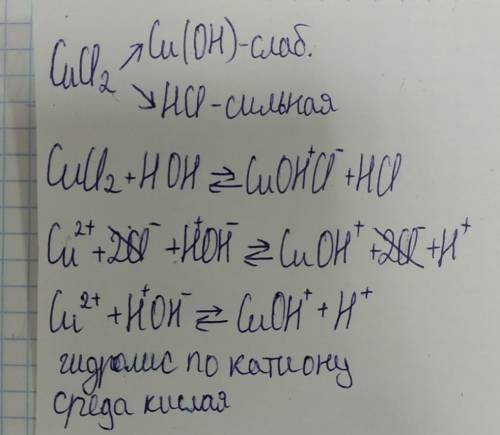 CuCl₂ ↗ Cu(OH)-слаб.
↘ HCl-сильная
CuCl₂ + HOH ⇄ CuOH⁺Cl⁻ + HCl
Cu²⁺ + 2Cl⁻ + H⁺OH⁻ ⇄ CuOH⁺ + 2Cl⁻ + H⁺
Cu²⁺ + H⁺OH⁻ ⇄ CuOH⁺ + H⁺
гидролис по катиону
среда кислая